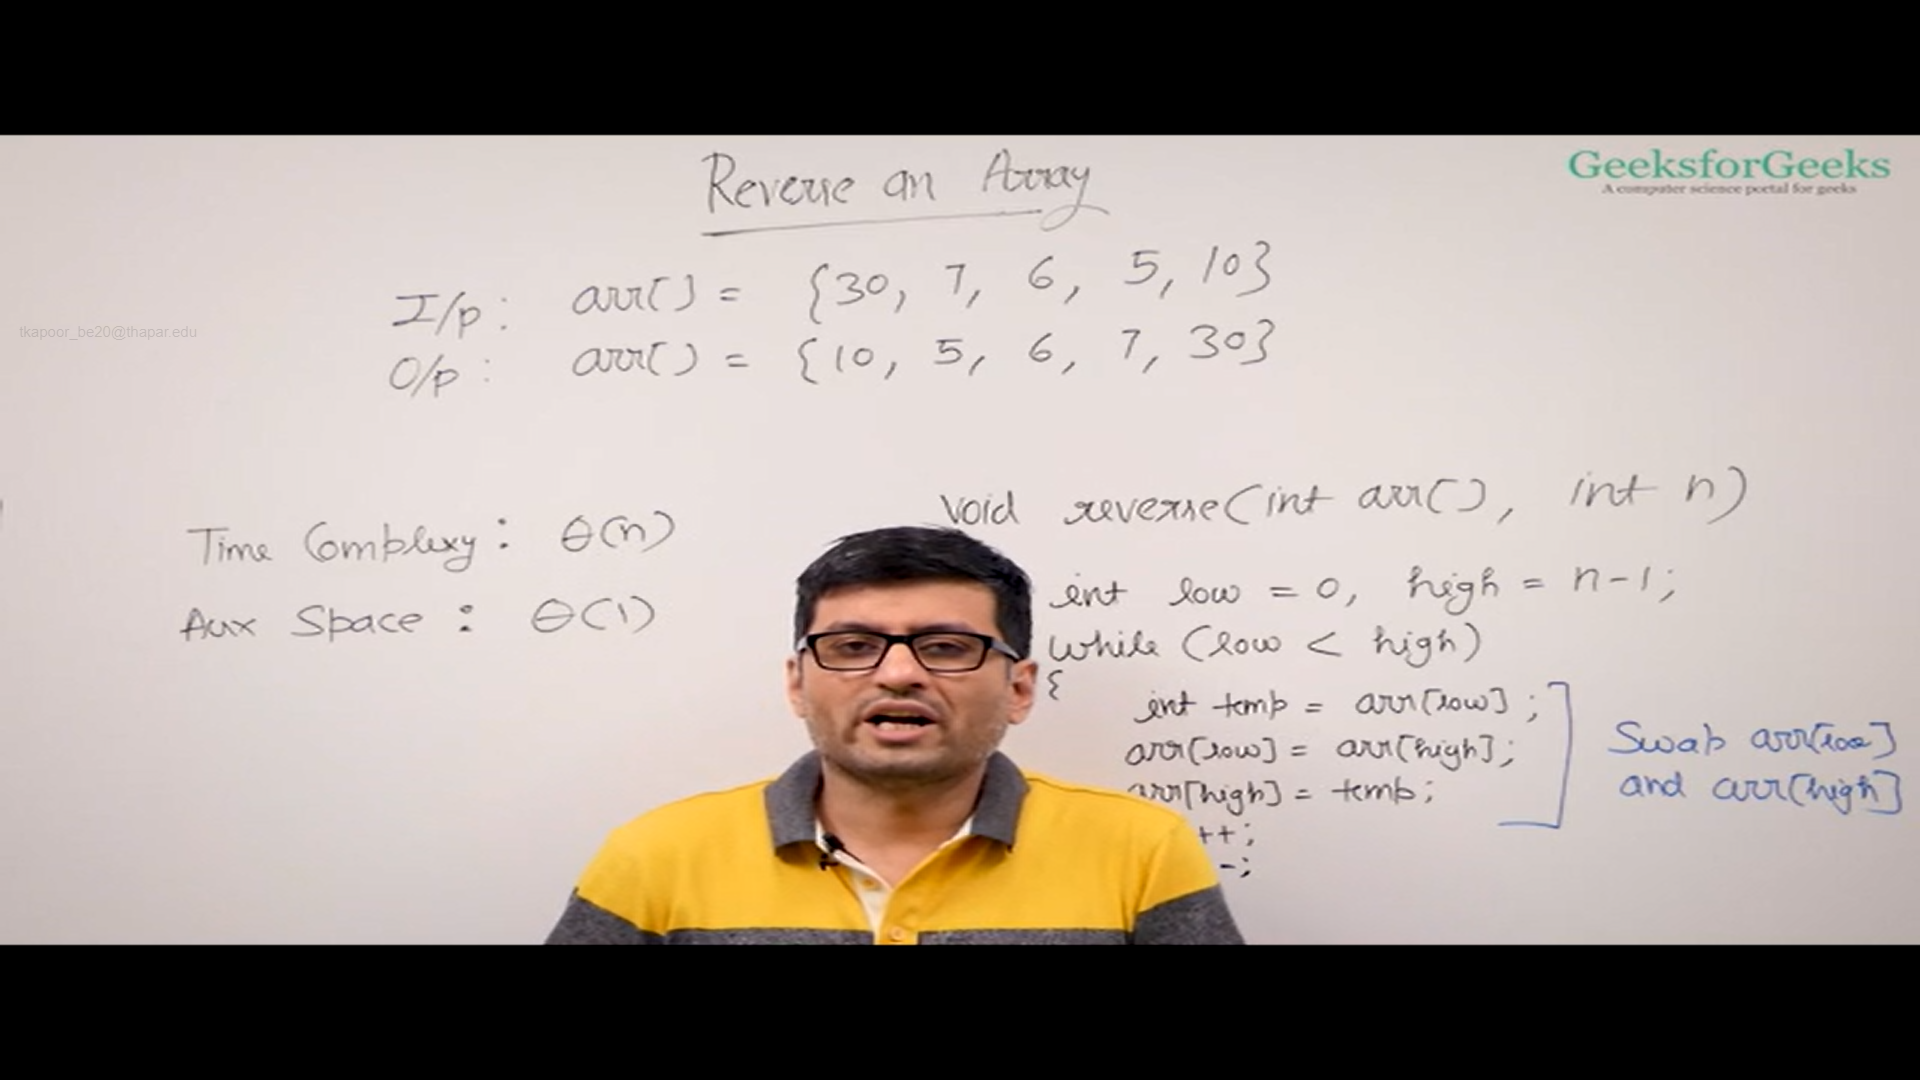 Reverse an Array
GeeksforGeeks
A computer science portal for geeks
I/p: arr[] = {30, 7, 6, 5, 10}
tkapoor_be20@thapar.edu
O/p: arr[] = {10, 5, 6, 7, 30}
Time Complexy: θ(n)
Aux Space: θ(1)
void reverse(int arr[], int n)
int low = 0, high = n-1;
while (low < high)
{
int temp = arr[low];
arr[low] = arr[high];
arr[high] = temp;
++;
-;
Swap arr[low]
and arr[high]